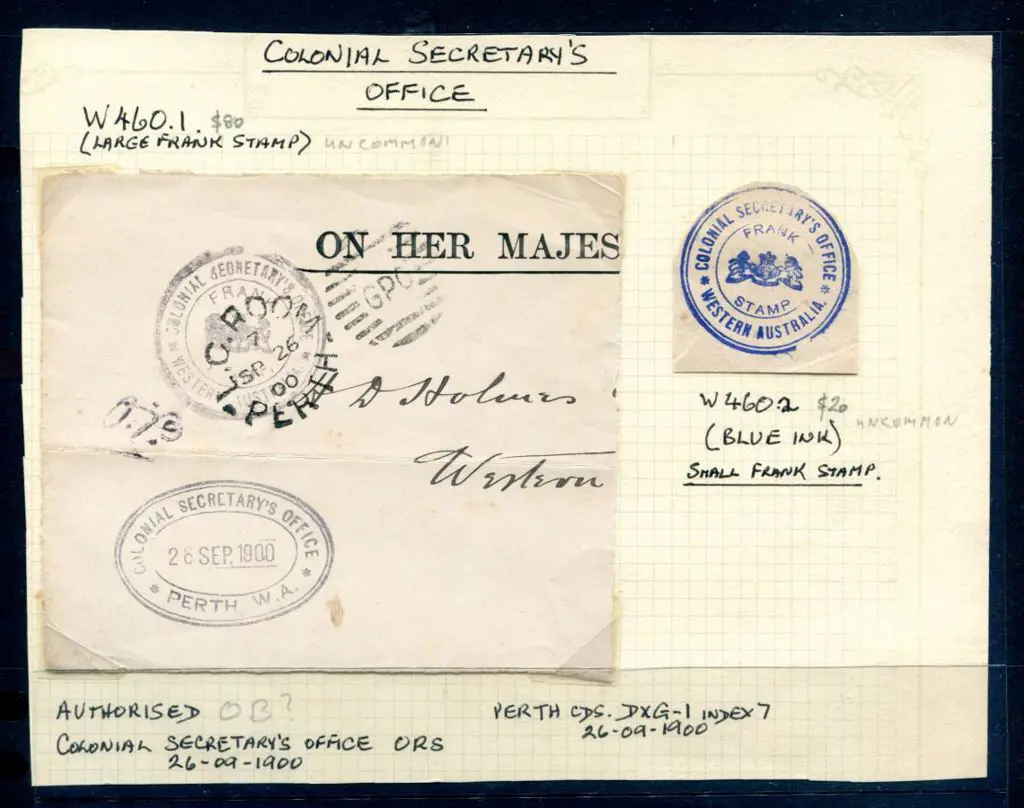 COLONIAL SECRETARY'S
OFFICE
W460.1. $80
(LARGE FRANK STAMP) UNCOMMON!
ON HER MAJES
COLONIAL SECRETARY'S OFFICE
FRANK
WESTERN AUSTRALIA
GPO
L.C. ROOM
7
SP. 26
00
PERTH
D Holmes
Western
COLONIAL SECRETARY'S OFFICE
26 SEP. 1900
* PERTH, W.A. *
COLONIAL SECRETARY'S OFFICE
FRANK
STAMP
* WESTERN AUSTRALIA. *
W460.2 $20
UNCOMMON
(BLUE INK)
SMALL FRANK STAMP.
AUTHORISED OB?
COLONIAL SECRETARY'S OFFICE ORS
26-09-1900
PERTH CDS. DXG-1 INDEX 7
26-09-1900